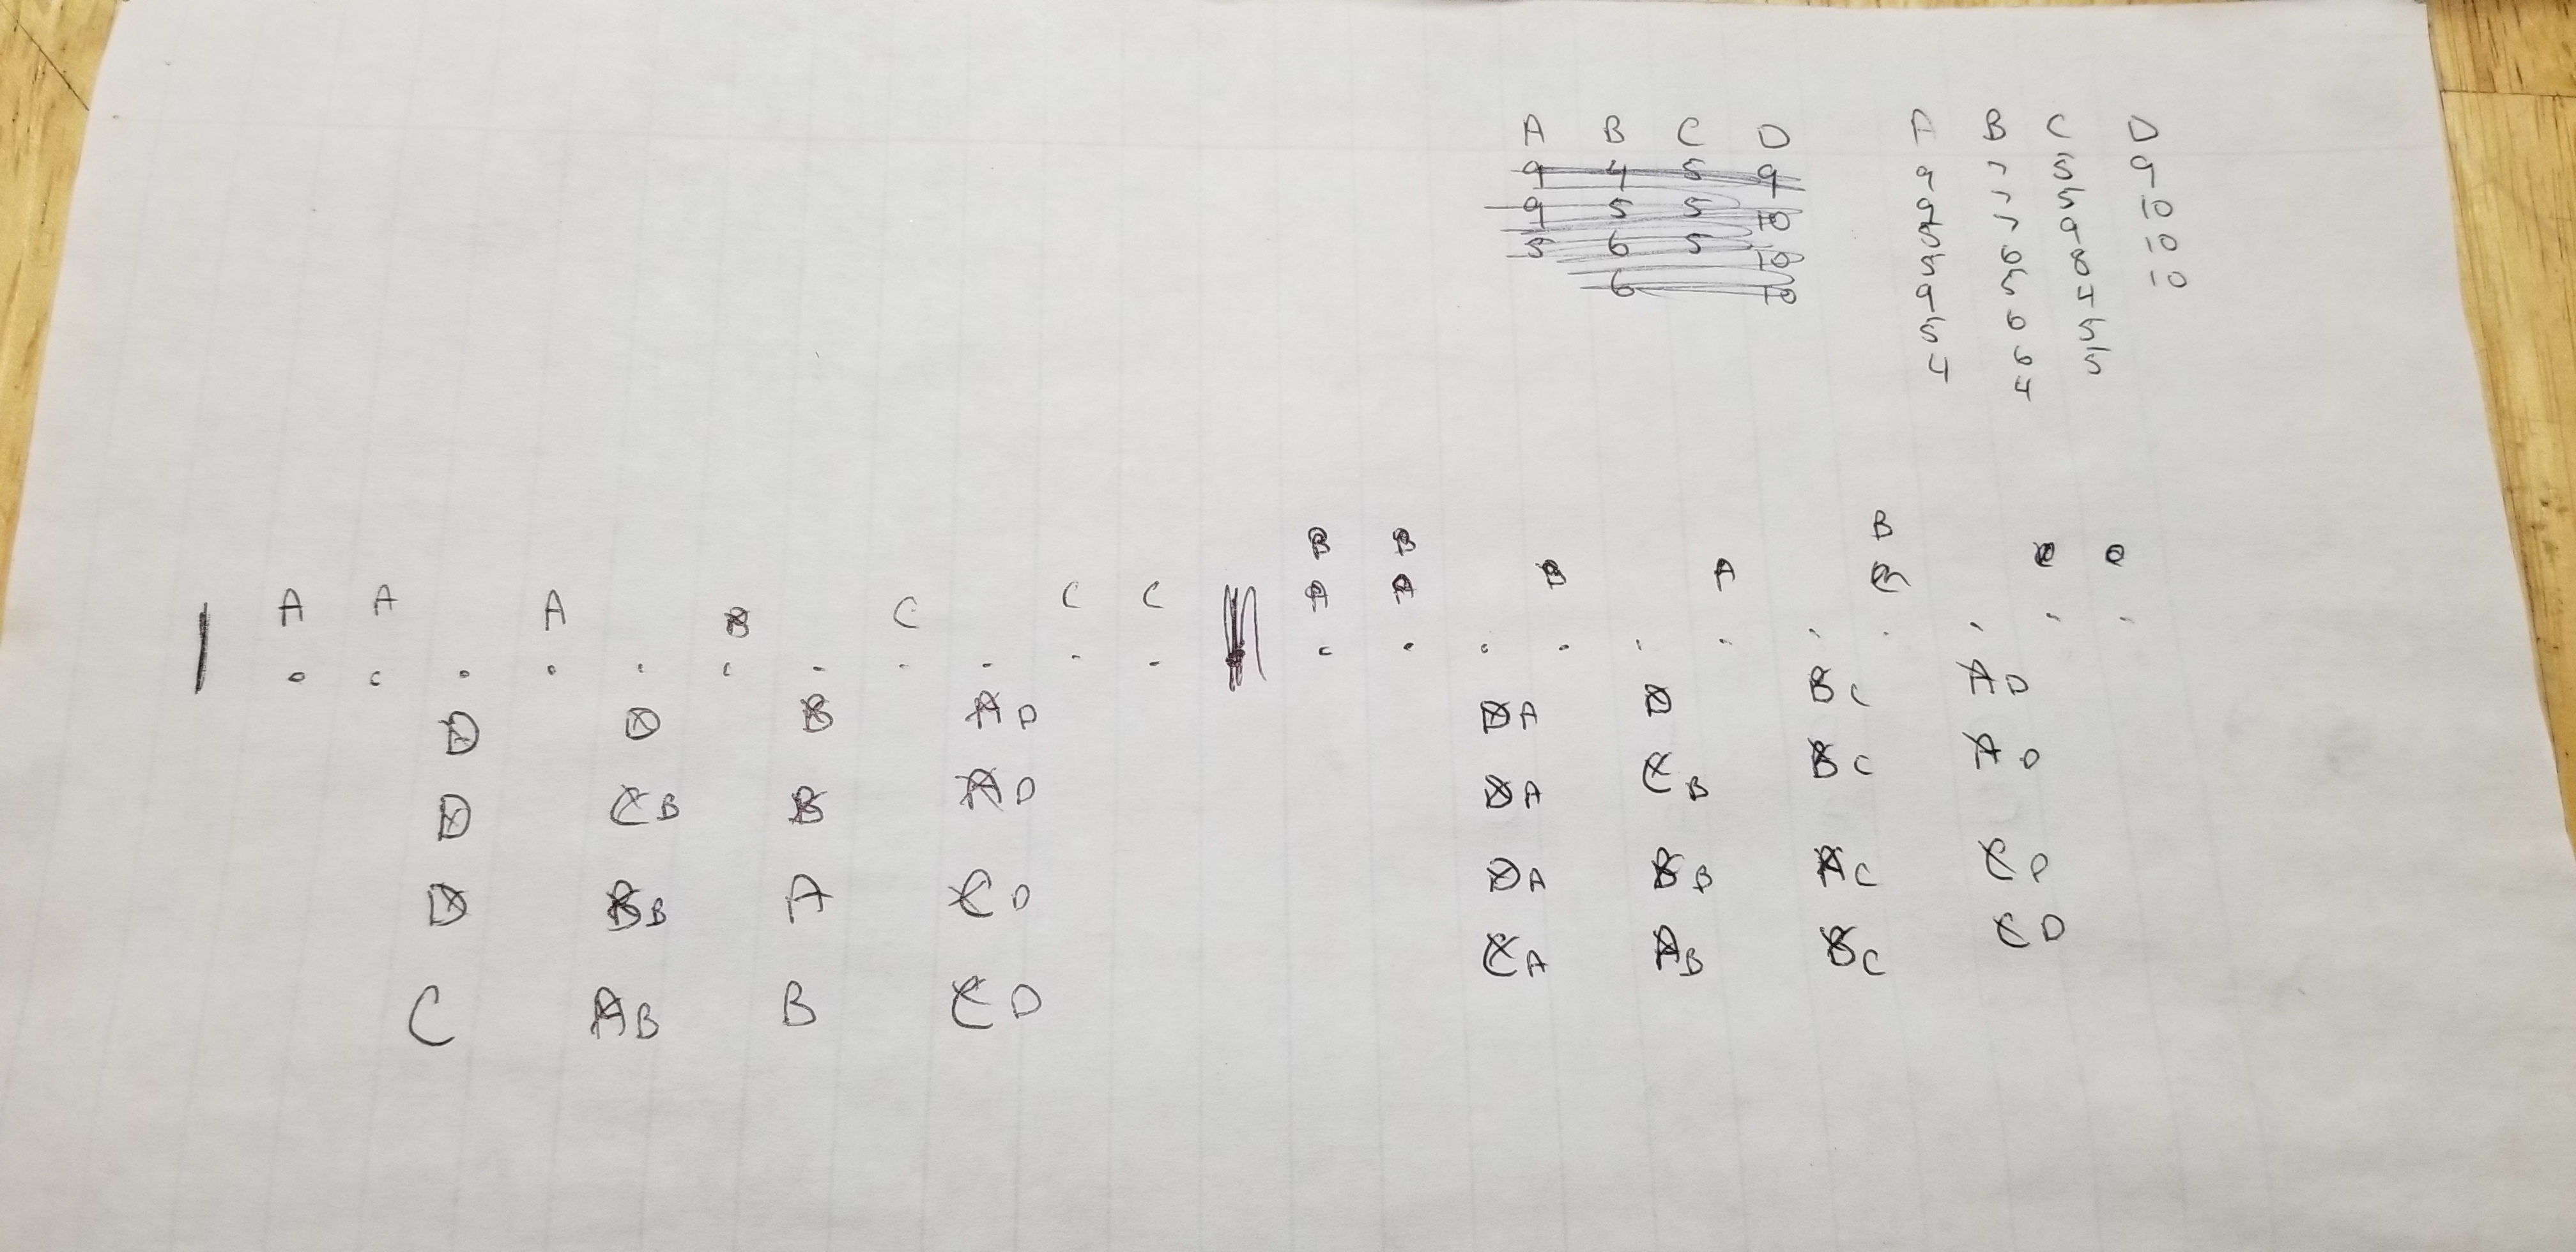 A B C D
9 4 5 9
9 5 5 10
5 6 5 10
6 10
A B C D
9 7 5 9
9 7 5 10
5 7 9 10
5 6 8 10
9 5 5
5 6 5
4 6 5
4
A A A B C C C
D D B A D
D C B B A D
D B B A C D
C A B B C D
B B B
A A B A C
D A D B C A D
D A C B B C A D
D A B B A C C D
C A A B B C C D